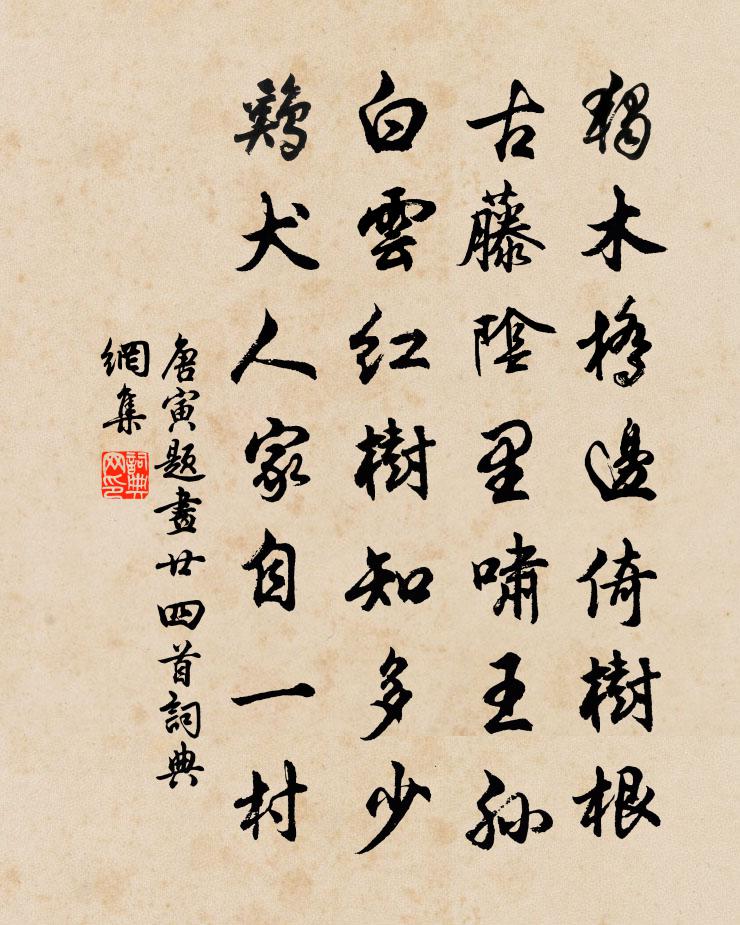 獨木橋邊倚樹根
古藤陰里嘯王孫
白雲紅樹知多少
鷄犬人家自一村
唐寅題畫廿四首詞典
網集
詞典網印